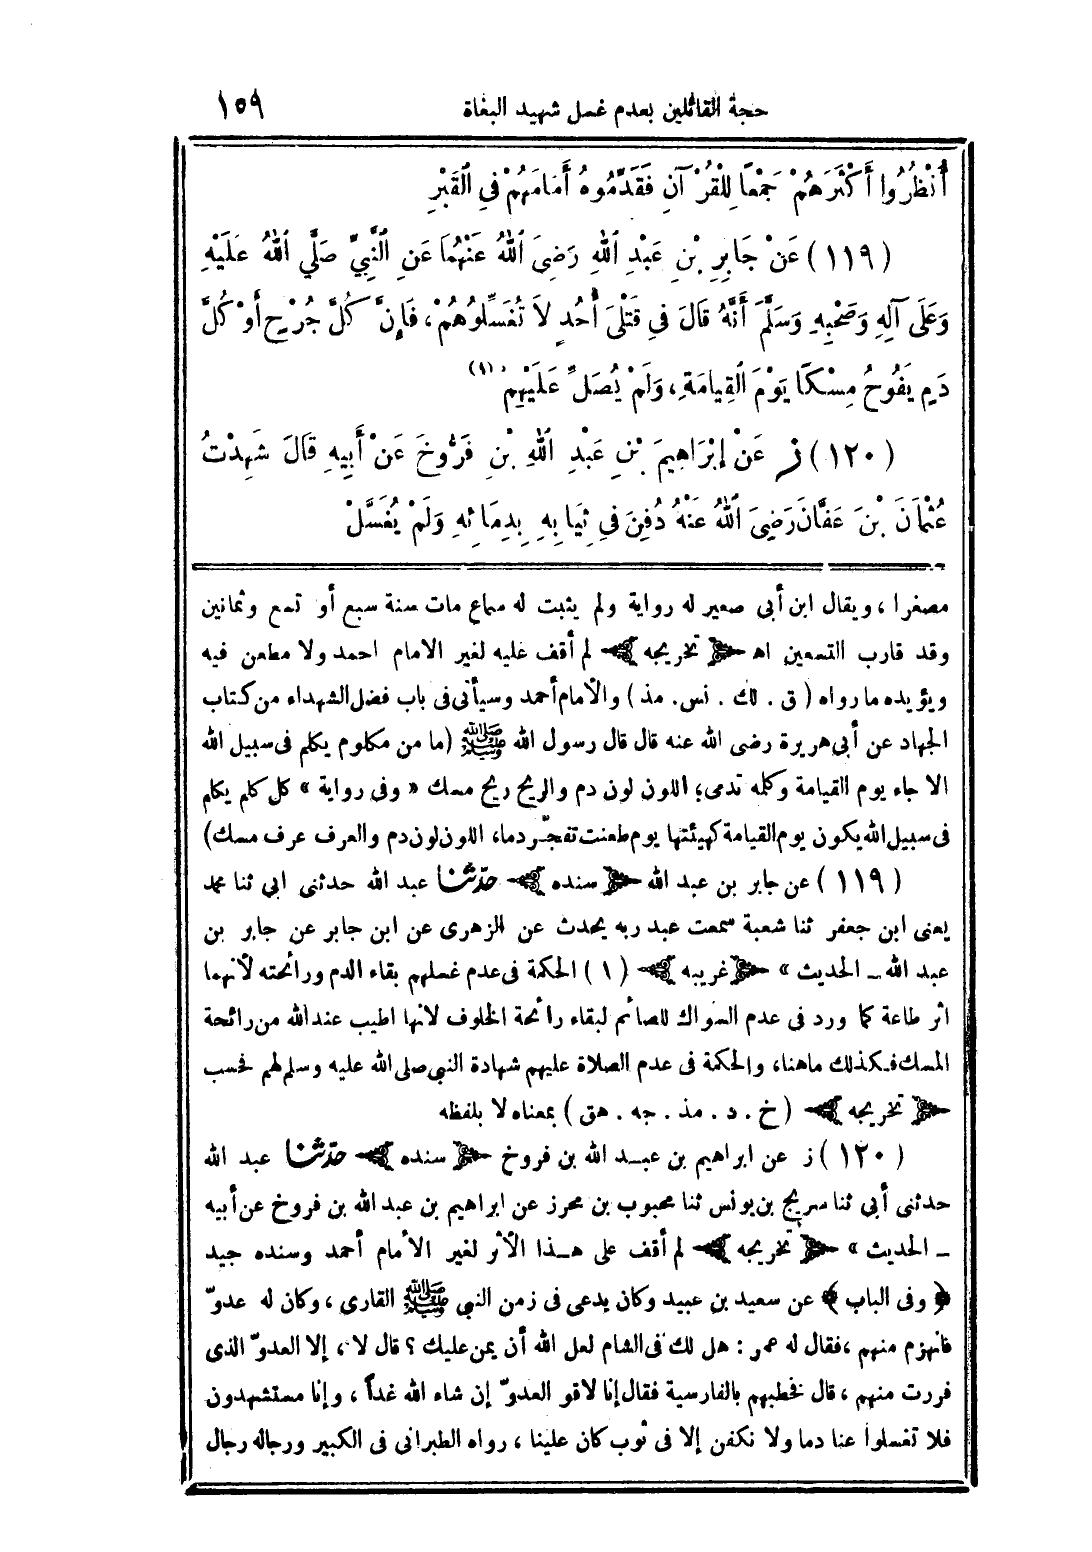 حجة القائلين بعدم غسل شهيد البغاة ١٥٩
أُنْظُرُوا أَكْثَرَهُمْ جَمْعًا لِلْقُرْآنِ فَقَدِّمُوهُ أَمَامَهُمْ فِي الْقَبْرِ
(١١٩) عَنْ جَابِرِ بْنِ عَبْدِ اللهِ رَضِيَ اللهُ عَنْهُمَا عَنِ النَّبِيِّ صَلَّي اللهُ عَلَيْهِ
وَعَلَى آلِهِ وَصَحْبِهِ وَسَلَّمَ أَنَّهُ قَالَ فِي قَتْلَى أُحُدٍ لَا تُغَسِّلُوهُمْ، فَإِنَّ كُلَّ جُرْحٍ أَوْ كُلَّ
دَمٍ يَفُوحُ مِسْكًا يَوْمَ الْقِيَامَةِ، وَلَمْ يُصَلِّ عَلَيْهِمْ (١)
(١٢٠) ز عَنْ إِبْرَاهِيمَ بْنِ عَبْدِ اللهِ بْنِ فَرُّوخَ عَنْ أَبِيهِ قَالَ شَهِدْتُ
عُثْمَانَ بْنَ عَفَّانَ رَضِيَ اللهُ عَنْهُ دُفِنَ فِي ثِيَابِهِ بِدِمَائِهِ وَلَمْ يُغَسَّلْ
مصغرا ، ويقال ابن أبى صعير له رواية ولم يثبت له سماع مات سنة سبع أو تسع وثمانين
وقد قارب التسعين اهـ ﴿ تخريجه ﴾ لم أقف عليه لغير الامام احمد ولا مطعن فيه
ويؤيده ما رواه (ق . لك . نس. مذ) والأمام أحمد وسيأتى فى باب فضل الشهداء من كتاب
الجهاد عن أبى هريرة رضى الله عنه قال قال رسول الله ﷺ (ما من مكلوم يكلم فى سبيل الله
الا جاء يوم القيامة وكلمه تدمى؛ اللون لون دم والريح ريح مسك « وفى رواية » كل كلم يكلم
فى سبيل الله يكون يوم القيامة كهيئتها يوم طعنت تفجّر دما، اللون لون دم والعرف عرف مسك)
(١١٩) عن جابر بن عبد الله ﴿ سنده ﴾ حدّثنا عبد الله حدثنى ابى ثنا محمد
يعنى ابن جعفر ثنا شعبة سمعت عبد ربه يحدث عن الزهرى عن ابن جابر عن جابر بن
عبد الله ــ الحديث » ﴿ غريبه ﴾ (١) الحكمة فى عدم غسلهم بقاء الدم ورائحته لأنهما
اثر طاعة كما ورد فى عدم السواك للصائم لبقاء رائحة الخلوف لانها اطيب عند الله من رائحة
المسك فكذلك ماهنا، والحكمة فى عدم الصلاة عليهم شهادة النبى صلى الله عليه وسلم لهم فحسب
﴿ تخريجه ﴾ (خ . د . مذ . جه . هق) بمعناه لا بلفظه
(١٢٠) ز عن ابراهيم بن عبد الله بن فروخ ﴿ سنده ﴾ حدّثنا عبد الله
حدثنى أبي ثنا سريج بن يونس ثنا محبوب بن محرز عن ابراهيم بن عبد الله بن فروخ عن أبيه
ــ الحديث » ﴿ تخريجه ﴾ لم أقف على هذا الأثر لغير الأمام أحمد وسنده جيد
﴿ وفى الباب ﴾ عن سعيد بن عبيد وكان يدعى فى زمن النبى ﷺ القارى ، وكان له عدوّ
فانهزم منهم ، فقال له عمر : هل لك فى الشام لعل الله أن يمن عليك ؟ قال لا ، إلا العدوّ الذى
فررت منهم ، قال فخطبهم بالفارسية فقال إنا لاقو العدوّ إن شاء الله غداً ، وإنا مستشهدون
فلا تغسلوا عنا دما ولا نكفن إلا فى ثوب كان علينا ، رواه الطبرانى فى الكبير ورجاله رجال